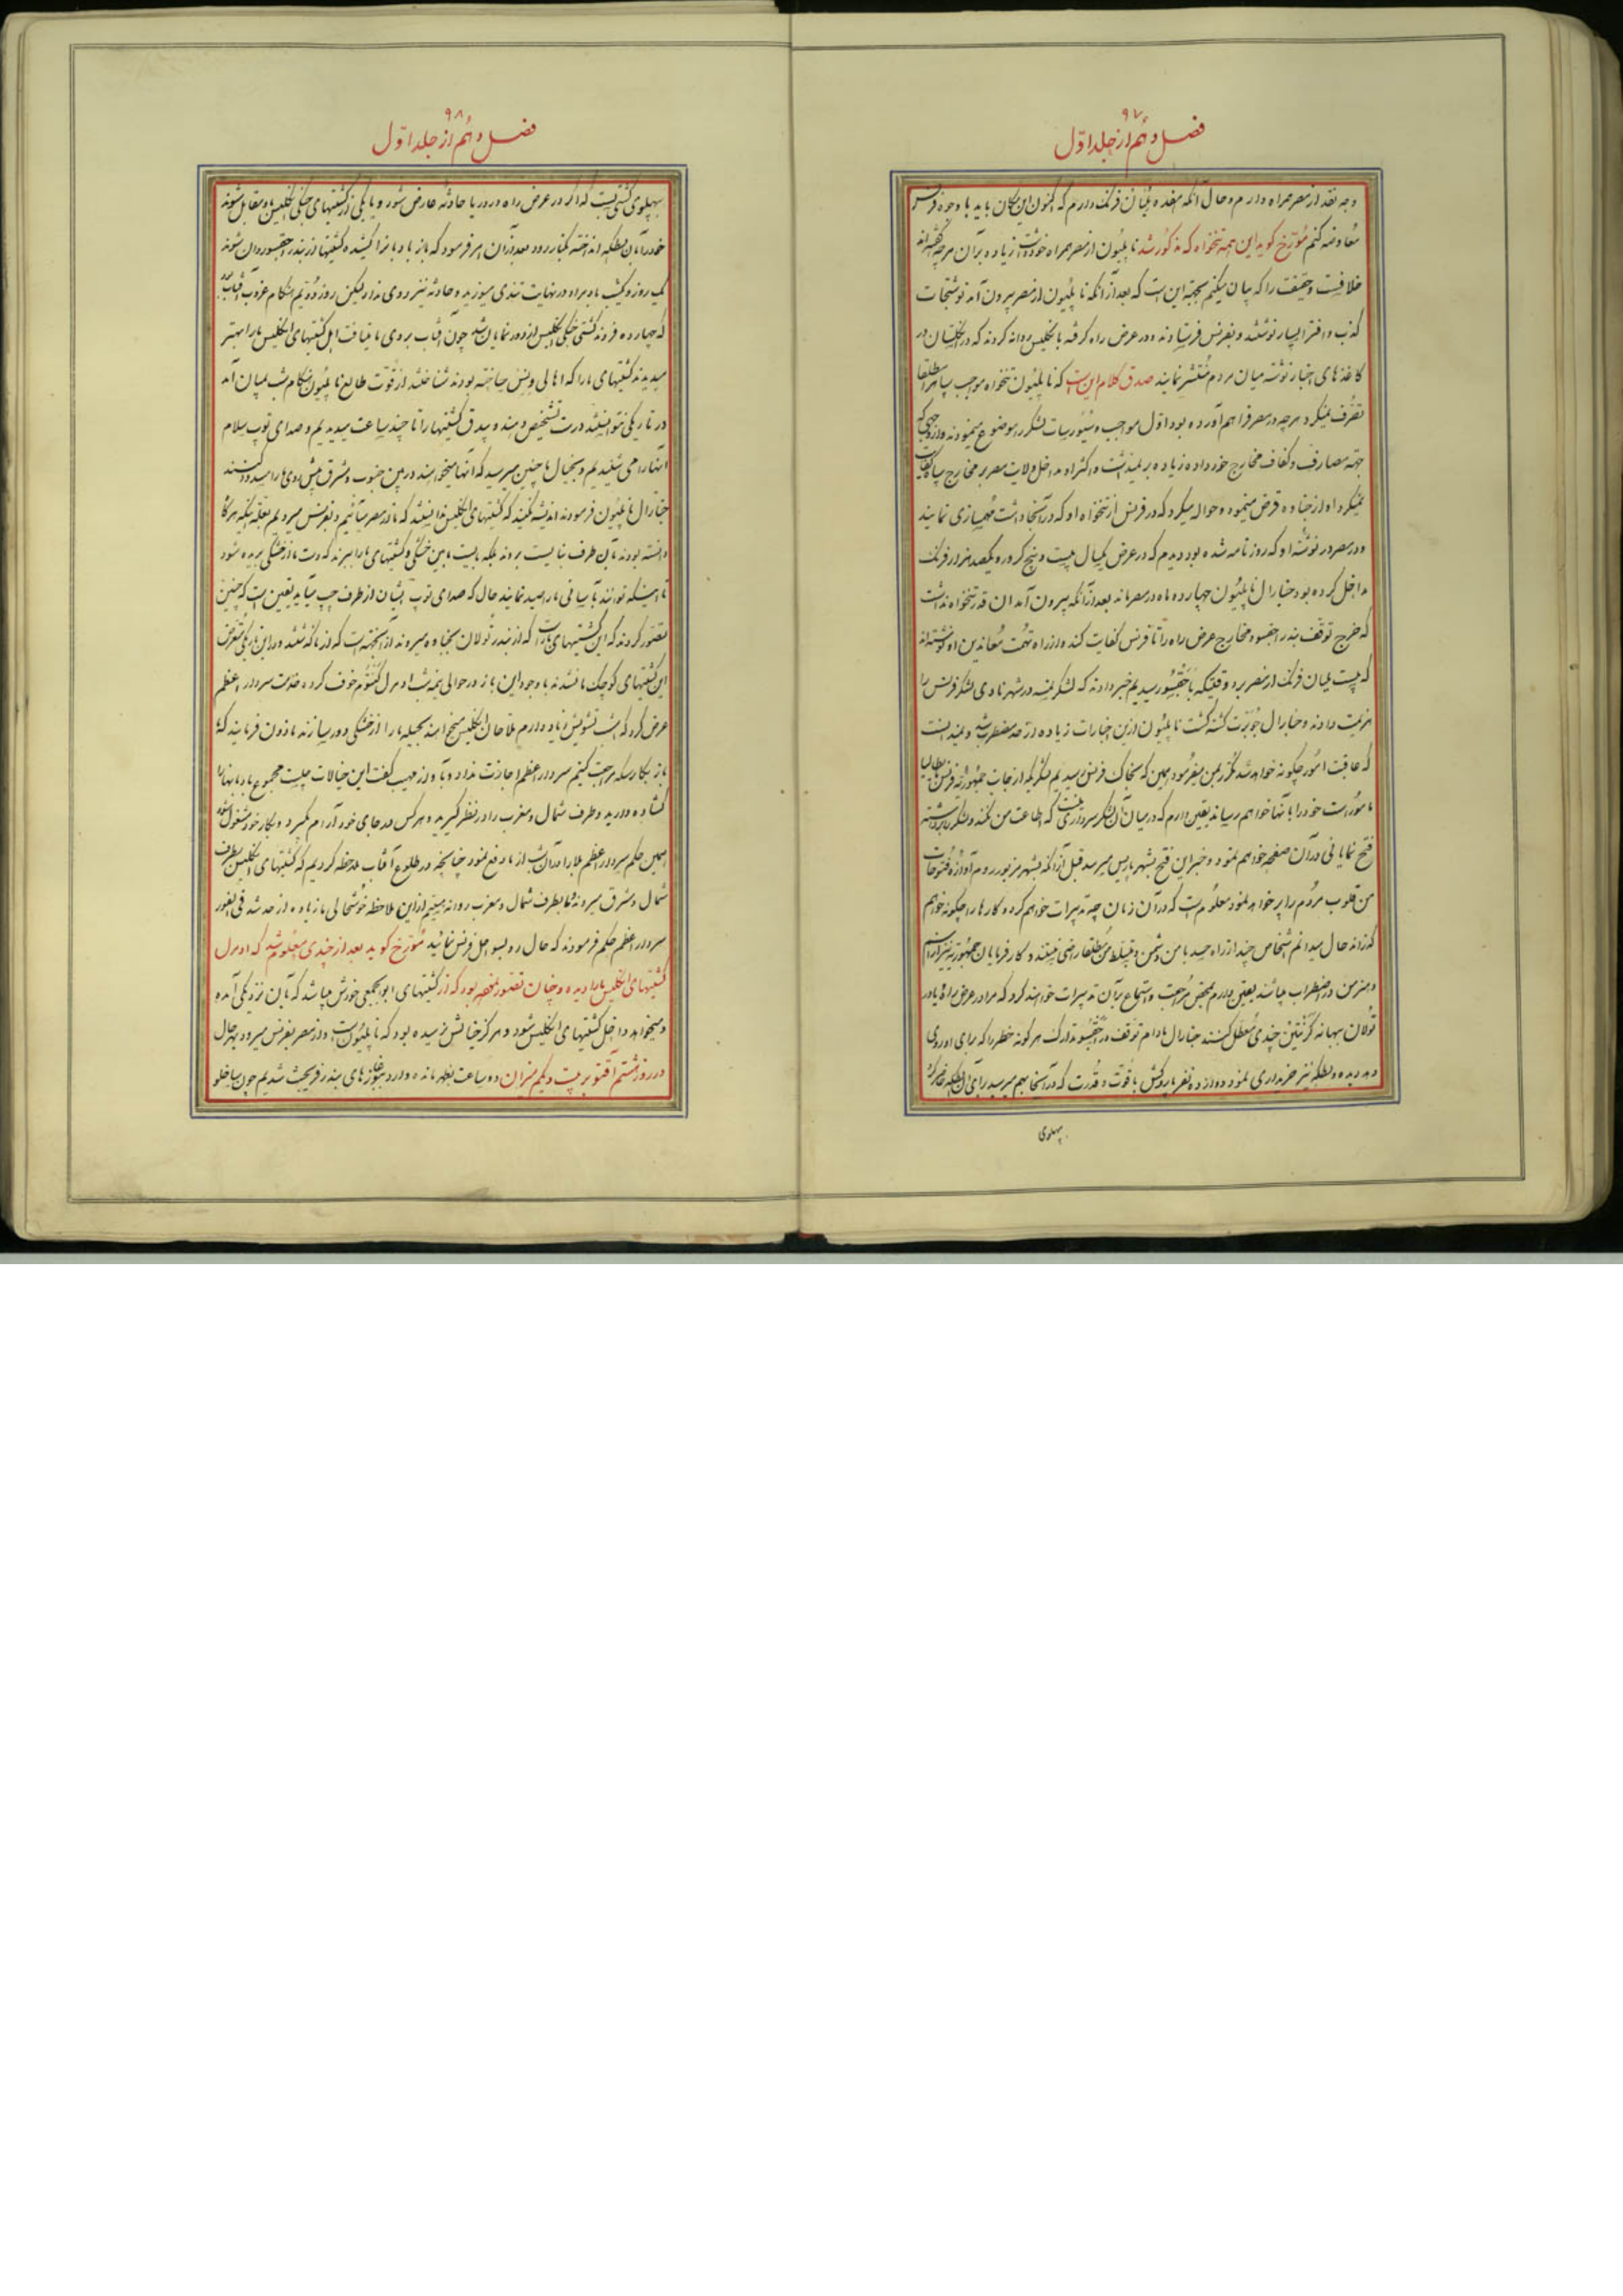 ۹۷
فصل دهم از جلد اوّل
وجه نقد از مصر همراه دارم و حال آنکه هفده میلیان فرنک دارم که اکنون این مکان باید با وجوه فرنس
معاوضه کنم مُورّخ گوید این همه تنخواه که مذکور شد ناپلیُون از مصر همراه خود داشت زیاده بر آن هرچه گفته‌اند
خلافست و حقیقت را که بیان میکنم بجهة این است که بعد از آنکه ناپلیُون از مصر بیرون آمد نوشتجات
کذب و افترا بسیار نوشتند و بفرنس فرستادند و در عرض راه گرفته بانگلیس روانه کردند که در انگلستان در
کاغذهای اخبار نوشته میان مردم مُنتشر نمایند صدق کلام این است که ناپلیُون تنخواه موجب سپاه را مطلقا
تصرّف نمیکرد و هرچه در مصر فراهم آورده بود اوّل مواجب و سیورسات لشکر را موضوع مینمودند و از وجهی که
جهة مصارف و کفاف مخارج خود داده زیاده بر نمیداشت و اکثر اوه مداخل ولایت مصر بر مخارج سپاه کفایت
نمیکرد او از جاوه قرض مینمود و حواله میکرد که در فرنس از تنخواه او که در آنجا داشت مهمسازی نمایند
و در مصر در نوشته او که روزنامه شده بود دیدم که در عرض یکسال بیست و پنج کرور و یکصد هزار فرنک
مداخل کرده بود جنارال ناپلیُون چهارده ماه در مصر ماند بعد از آنکه بیرون آمد آن قدر تنخواه نداشت
که خرج توقّف بندر اجقسو و مخارج عرض راه را تا فرنس کفایت کند و از راه تهمت مُعاندین او نوشته‌اند
که بیست میلیان فرنک از مصر برد وقتیکه باجقسُور سیدیم خبر دادند که لشکر نمسه در شهر نادی لشکر فرنس را
هزیمت دادند و جنارال جُوبرت کشته گشت ناپلیُون ازین اخبارات زیاده از حد مضطرب شد و نمیدانست
که عاقبت امُور چگونه خواهد شد مکرّر بمن میفرمود همین که بخاک فرنس رسیدیم لشکریکه از جانب جمهوریه فرنس بایطالیا
مامُور است خود را بآنها خواهم رسانید یقین دارم که در میان آن لشکر سرداری نیست که اطاعت من نکند و لشکر را برداشته
فتح نمایانی در آن صفحه خواهم نمود و خبر این فتح بشهر پاریس میرسد قبل از آنکه بشهر مزبور روم آوازه فتوحات
من قلوب مردُم را پر خواهد نمود معلُوم است که در آن زمان چه تدبیرات خواهم کرد و کارها را چگونه خواهم
گذراند حال میدانم اشخاص چند از راه حسد با من دشمن و بتسلّط من مُطلقا راضی نیستند و کارفرمایان جمهُوریه نیز از اسم
و هنر من در اضطراب میباشند یقین دارم بمحض مُراجعت و استماع بر آن تدبیرات خواهند کرد که مرا در عرض راه یا در
تُولان ببهانه کرنتین چندی مُعطّل کنند جنارال مادام توقّف در اجقسُو تدارک هرگونه خطر را که برای او روی
دهد دیده و بطکه نیز خریداری نمود و دوازده نفر پاروکش با قوّت و قدرت که در آنجا بهم میرسید برای آن بطکه حاضر کرد
بپهلوی
۹۸
فصل دهم از جلد اوّل
بپهلوی کشتی بست که اگر در عرض راه در دریا حادثه عارض شود و یا یکی از کشتیهای جنگی انگلیس با او مقابل شوند
خود را بآن بطکه انداخته بکنار رود بعد از آن امر فرمود که باز بادبانها کشیده کشتیها از بندر اجقسو روان شوند
یک روز و یکشب باد مراد در نهایت تندی میوزید و حادثه نیز روی نداد لیکن روز دُویّم هنگام غروب آفتاب دیدیم
که چهارده فروند کشتی جنگی انگلیس از دور نمایان شد چون آفتاب بروی ما میتافت اهل کشتیهای انگلیس ما را بهتر
میدیدند کشتیهای ما را که اهالی ونیس ساخته بودند شناختند از قوّت طالع ناپلیُون هنگام شب بمیان آمد
در تاریکی نتوانستند درست تشخیص دهند و بیدق کشتیها را تا چند ساعت میدیدیم و صدای توپ سلام
آنها را می شنیدیم و بخیال ما چنین میرسید که آنها میخواهند در بین جنوب و مشرق پیش روی ما را مسدود کنند
جنارال ناپلیُون فرمودند اندیشه نکنید که کشتیهای انگلیس ندانستند که ما از مصر میآئیم و بفرنس میرویم بعلّة اینکه هرگاه
دانسته بودند بآن طرف نبایست بروند بلکه بایست مابین خشکی و کشتیهای ما را ببرند که دست ما از خشکی بریده شود
تا اینکه توانند بآسانی ما را صید نمایند حال که صدای توپ ایشان از طرف چپ میآید یقین است که چنین
تصوّر کردند که این کشتیهای بار است که از بندر تُولان بجاوه میروند از آنجهة است که از ما گذشتند و در این تاریکی متعرّض
این کشتیهای کوچک ما نشدند با وجود این باز در حوالی نیمه شب ادمرل گنتُوم خوف کرده خدمت سردار اعظم
عرض کرد که امشب تشویش زیاد دارم ملاحان انگلیس میخواهند بحیله ما را از خشکی دور سازند ماذون فرمایند که تا
باز بکارسکه مراجعت کنیم سردار اعظم اجازت نداد و بآواز مهیب گفت این خیالات چیست مجموع بادبانها را
گشاده دارید و طرف شمال و مغرب را در نظر گیرید و هر کس در جای خود آرام گیرد و بکار خود مشغول شود
همین حکم سردار اعظم بلا را در آن شب از ما دفع نمود چنانچه در طلوع آفتاب ملاحظه کردیم که کشتیهای انگلیس بطرف
شمال و مشرق میروند و ما بطرف شمال و مغرب روانه میشویم از این ملاحظه خوشحالی ما زیاده از حد شد فی الفور
سردار اعظم حکم فرمودند که حال رو بسواحل فرنس نمائید مُورّخ گوید بعد از چندی معلُوم شد که ادمرل
کشتیهای انگلیس ما را دیده و چنان تصوّر نموده بود که از کشتیهای ابوابجمعی خودش میباشد که بآن نزدیکی آمده
و میخواهد داخل کشتیهای انگلیس شود و هرگز خیالش نرسیده بود که ناپلیُون است و از مصر بفرنس میرود بهر حال
در روز هشتم اقتوبر بیست و یکم میزان دو ساعت بظهر مانده وارد بغازهای بندر فریجث شدیم چون سواحل